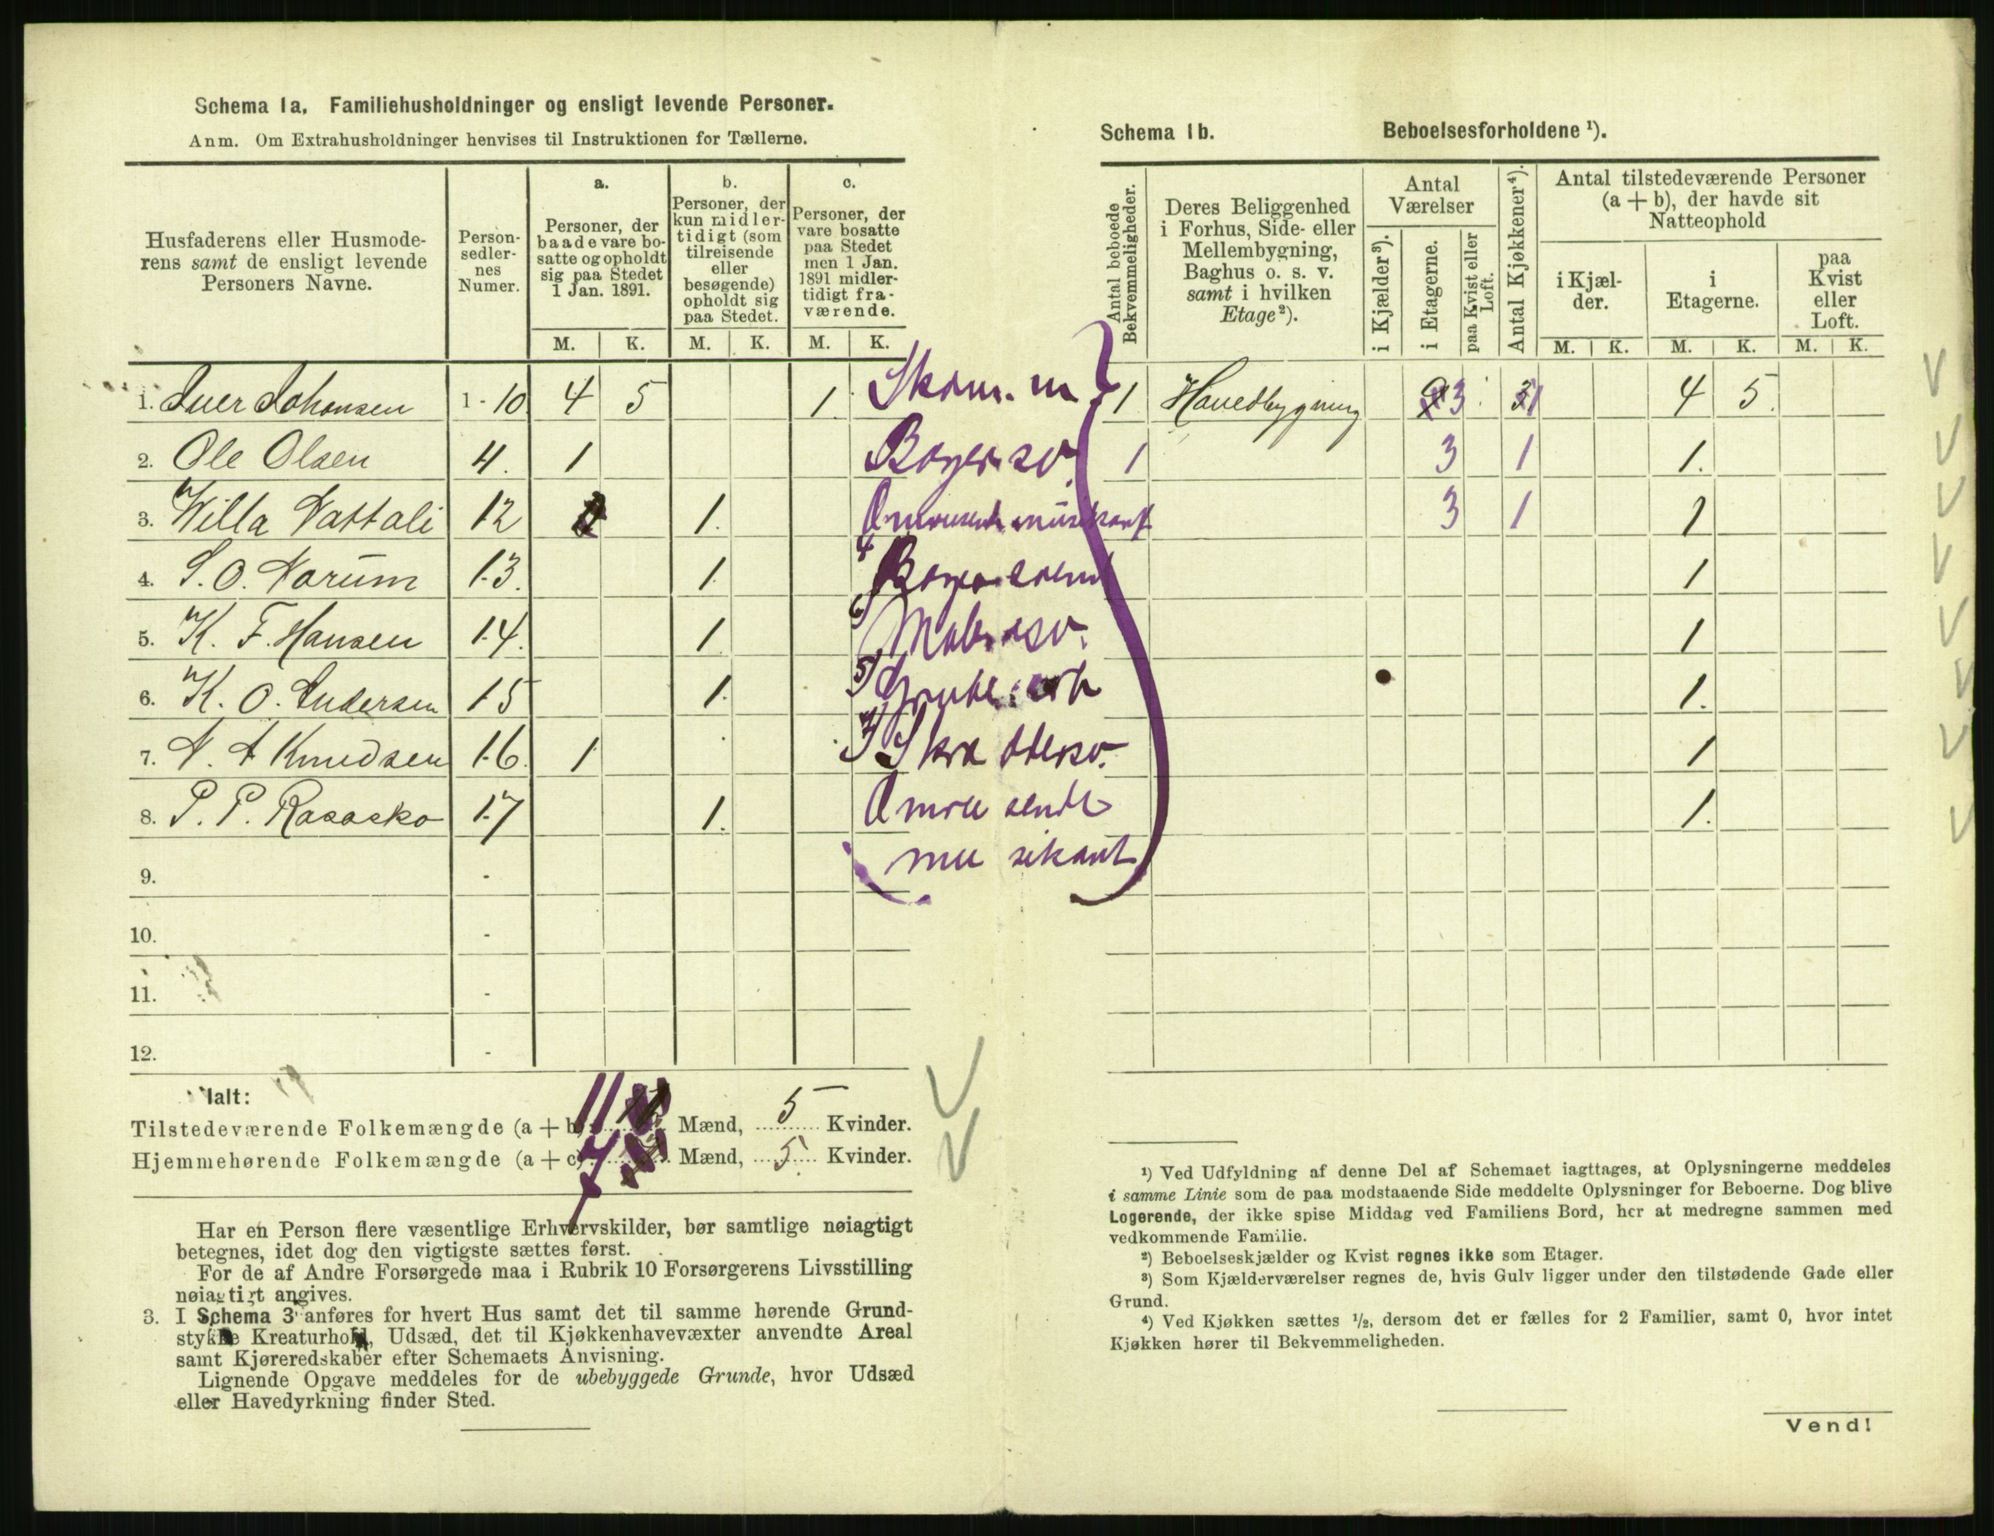 Schema 1a. Familiehusholdninger og ensligt levende Personer.
Anm. Om Extrahusholdninger henvises til Instruktionen for Tællerne.
Husfaderens eller Husmoderens samt de ensligt levende Personers Navne.
Personsedlernes Numer.
a. Personer, der baade vare bosatte og opholdt sig paa Stedet 1 Jan. 1891.
b. Personer, der kun midlertidigt (som tilreisende eller besøgende) opholdt sig paa Stedet.
c. Personer, der vare bosatte paa Stedet men 1 Jan. 1891 midlertidigt fraværende.
M. K. M. K. M. K.
1. Iver Johansen 1-10 4 5 1. Skom. m
2. Ole Olsen 4. 1 Bagersv.
3. Willa Nattali 12 1. Omreisende musikant
4. S. O. Narum 13. 1. 4
5. K. F. Hansen 14. 1. 6 Malersv.
6. K. O. Andersen 15 1. 5
7. N. A Knudsen 16. 1 7 Skræddersv.
8. P. P. Rasasko 17 1. Omreisende
musikant
9. -
10. -
11. -
12. -
Ialt:
Tilstedeværende Folkemængde (a + b) 11 Mænd, 5 Kvinder.
Hjemmehørende Folkemængde (a + c) 7 Mænd, 5. Kvinder.
Har en Person flere væsentlige Erhvervskilder, bør samtlige nøiagtigt
betegnes, idet dog den vigtigste sættes først.
For de af Andre Forsørgede maa i Rubrik 10 Forsørgerens Livsstilling
nøiagtigt angives.
3. I Schema 3 anføres for hvert Hus samt det til samme hørende Grund-
stykke Kreaturhold, Udsæd, det til Kjøkkenhavevæxter anvendte Areal
samt Kjøreredskaber efter Schemaets Anvisning.
Lignende Opgave meddeles for de ubebyggede Grunde, hvor Udsæd
eller Havedyrkning finder Sted.
Schema 1b. Beboelsesforholdene ¹).
Antal beboede Bekvemmeligheder.
Deres Beliggenhed i Forhus, Side- eller Mellembygning, Baghus o. s. v. samt i hvilken Etage²).
Antal Værelser
i Kjælder³).
i Etagerne.
paa Kvist eller Loft.
Antal Kjøkkener⁴).
Antal tilstedeværende Personer (a + b), der havde sit Natteophold
i Kjælder.
i Etagerne.
paa Kvist eller Loft.
M. K. M. K. M. K.
1 Hovedbygning 3 1 4 5.
1 3 1 1.
3 1 1
1
1
1.
1
1.
¹) Ved Udfyldning af denne Del af Schemaet iagttages, at Oplysningerne meddeles
i samme Linie som de paa modstaaende Side meddelte Oplysninger for Beboerne. Dog blive
Logerende, der ikke spise Middag ved Familiens Bord, her at medregne sammen med
vedkommende Familie.
²) Beboelseskjælder og Kvist regnes ikke som Etager.
³) Som Kjælderværelser regnes de, hvis Gulv ligger under den tilstødende Gade eller
Grund.
⁴) Ved Kjøkken sættes ½, dersom det er fælles for 2 Familier, samt 0, hvor intet
Kjøkken hører til Bekvemmeligheden.
Vend!